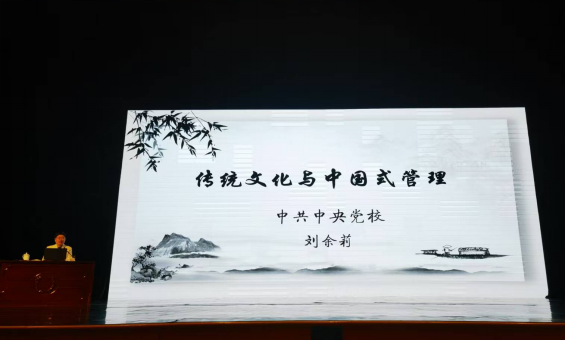 传统文化与中国式管理
中共中央党校
刘余莉